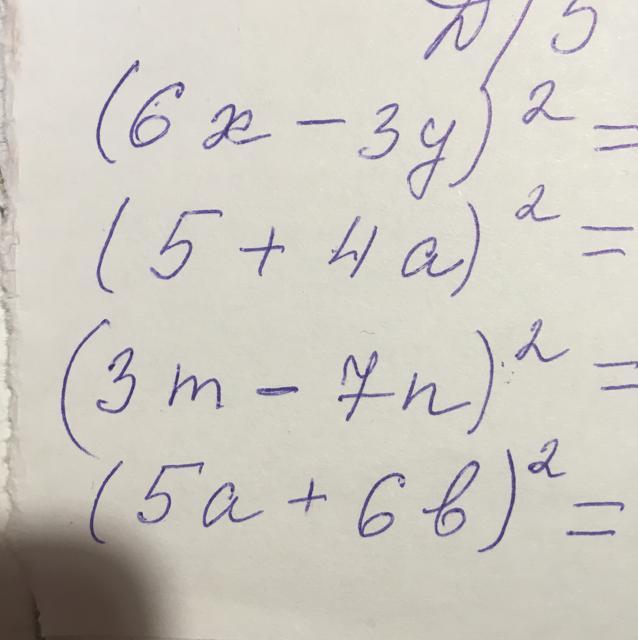 Д/З
(6x - 3y)² =
(5 + 4a)² =
(3m - 7n)² =
(5a + 6b)² =